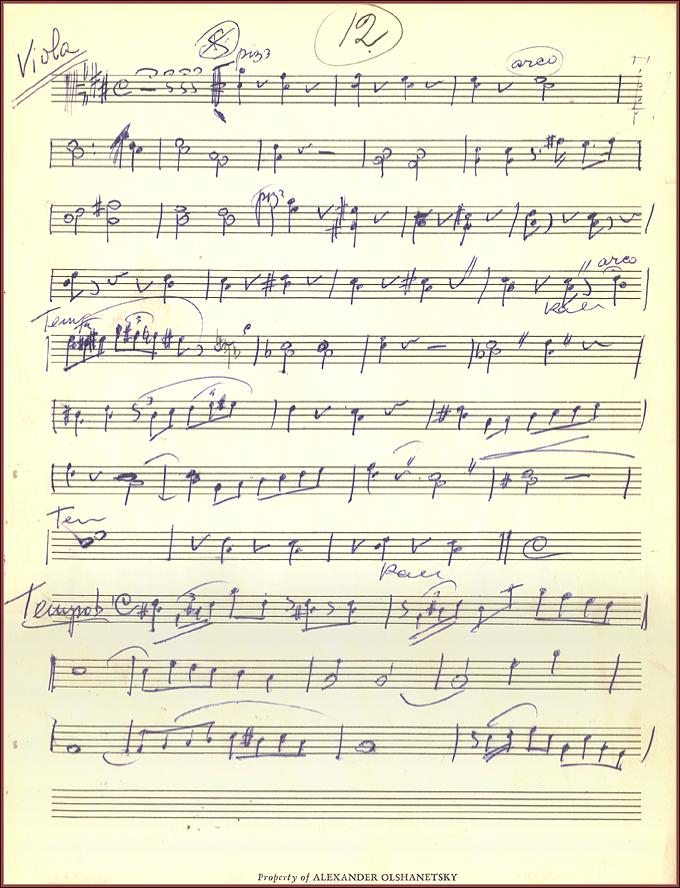 Viola
12
pizz
arco
pizz
arco
Rall
Tempo
3
3
Ten
Rall
Property of ALEXANDER OLSHANETSKY